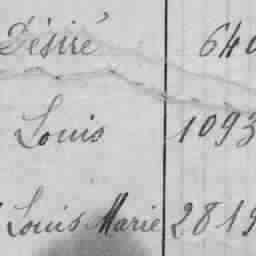 Désiré 640
Louis 1093
Louis Marie 2819